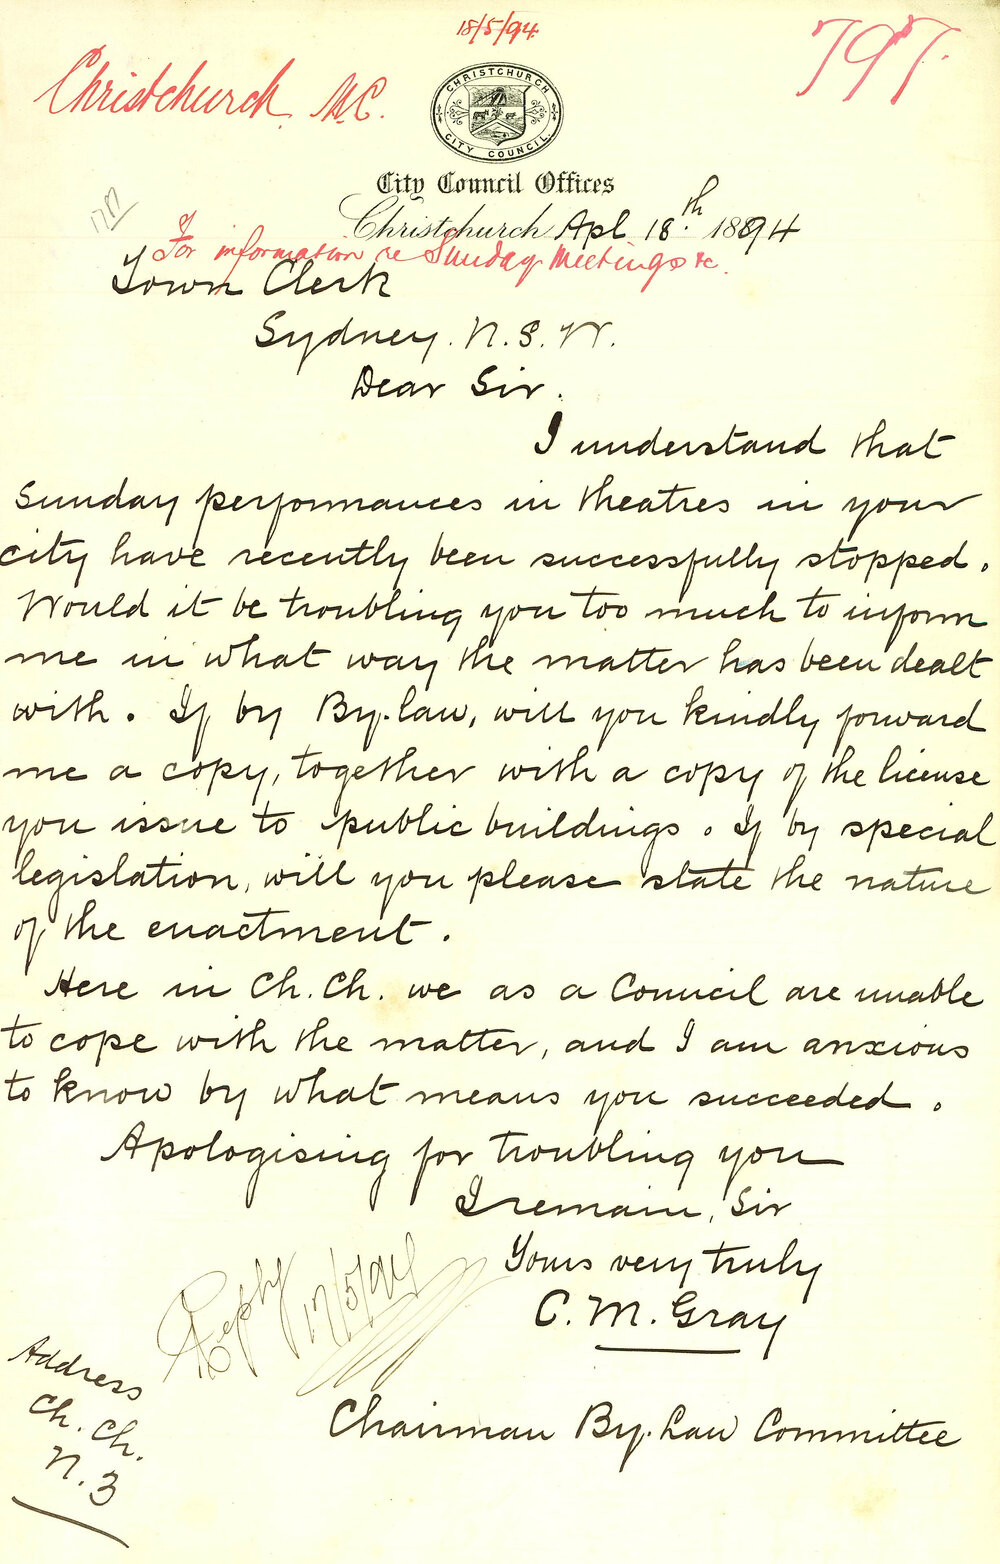 18/5/94
797.
Christchurch M.C.
CHRISTCHURCH
CITY COUNCIL.
City Council Offices
Christchurch Apl 18.th 1894
For information re Sunday Meetings &c.
Town Clerk
Sydney. N.S.W.
Dear Sir.
I understand that
Sunday performances in theatres in your
city have recently been successfully stopped.
Would it be troubling you too much to inform
me in what way the matter has been dealt
with. If by By.law, will you kindly forward
me a copy, together with a copy of the license
you issue to public buildings. If by special
legislation, will you please state the nature
of the enactment.
Here in Ch.Ch. we as a Council are unable
to cope with the matter, and I am anxious
to know by what means you succeeded.
Apologising for troubling you
I remain, Sir
Yours very truly
C. M. Gray
Chairman By.Law Committee
Reply 17/5/94
Address
Ch. Ch.
N.3